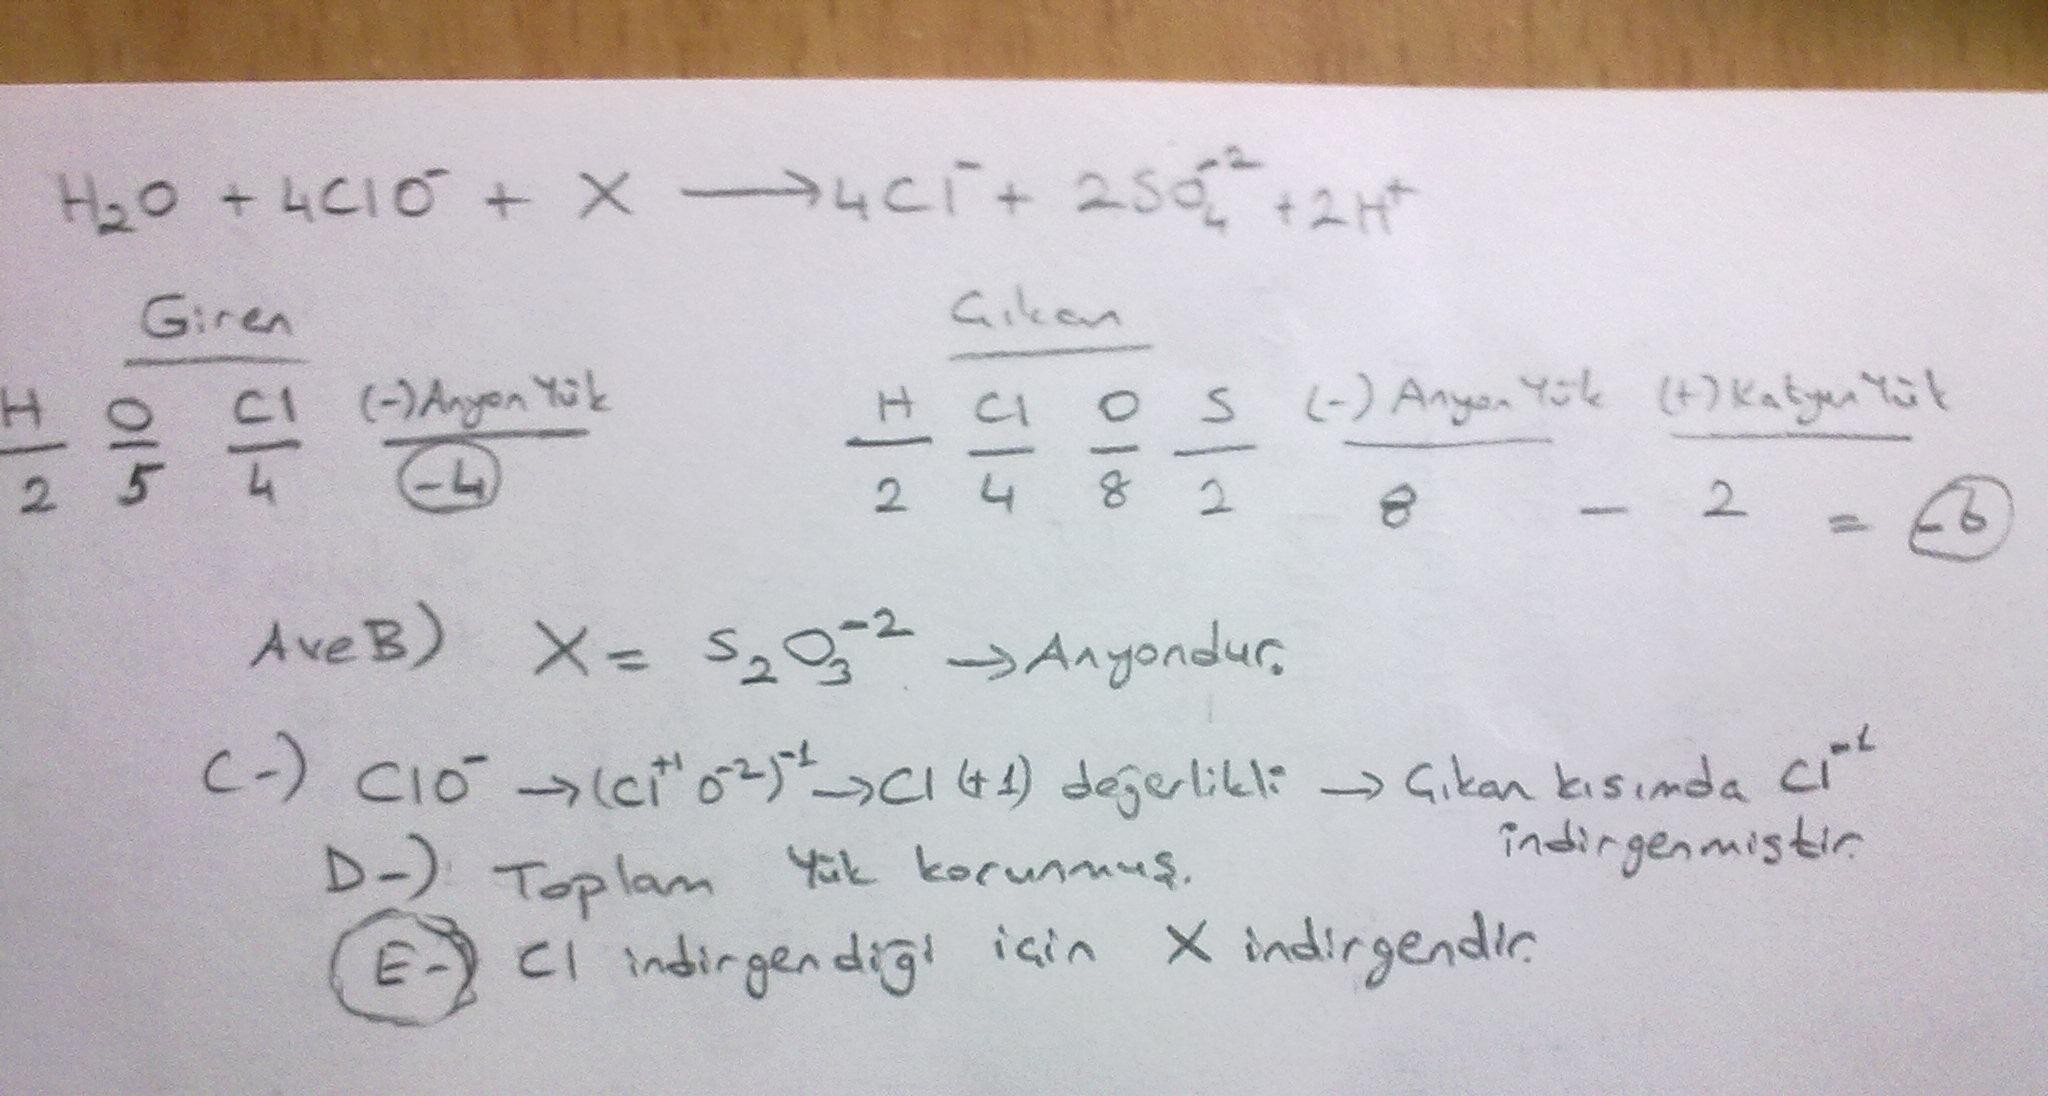 H₂O + 4ClO⁻ + X → 4Cl⁻ + 2SO₄⁻² + 2H⁺
Giren
H O Cl (-) Anyon Yük
2 5 4 -4
Çıkan
H Cl O S (-) Anyon Yük (+) Katyon Yük
2 4 8 2 8 - 2 = -6
A ve B) X = S₂O₃⁻² → Anyondur.
C-) ClO⁻ → (Cl⁺¹O⁻²)⁻¹ → Cl (+1) değerlikli → Çıkan kısımda Cl⁻¹
indirgenmiştir.
D-) Toplam Yük korunmuş.
E-) Cl indirgendiği için X indirgendir.